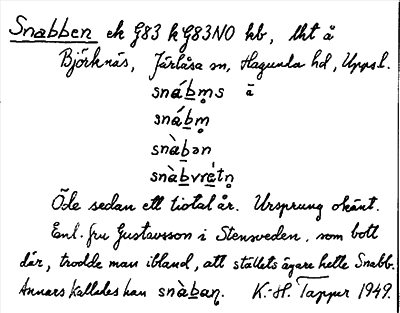 Snabben ek G83 k G83NO hb, lht å
Björknäs, Järlåsa sn, Hagunda hd, Uppsl.
snábm̥s ä
snábm̥
snàbən
snàbvrétn̥
Öde sedan ett tiotal år. Ursprung okänt.
Enl. fru Gustavsson i Stensveden, som bott
där, trodde man ibland, att ställets ägare hette Snabb.
Annars kallades han snàban. K.-H. Tapper 1949.